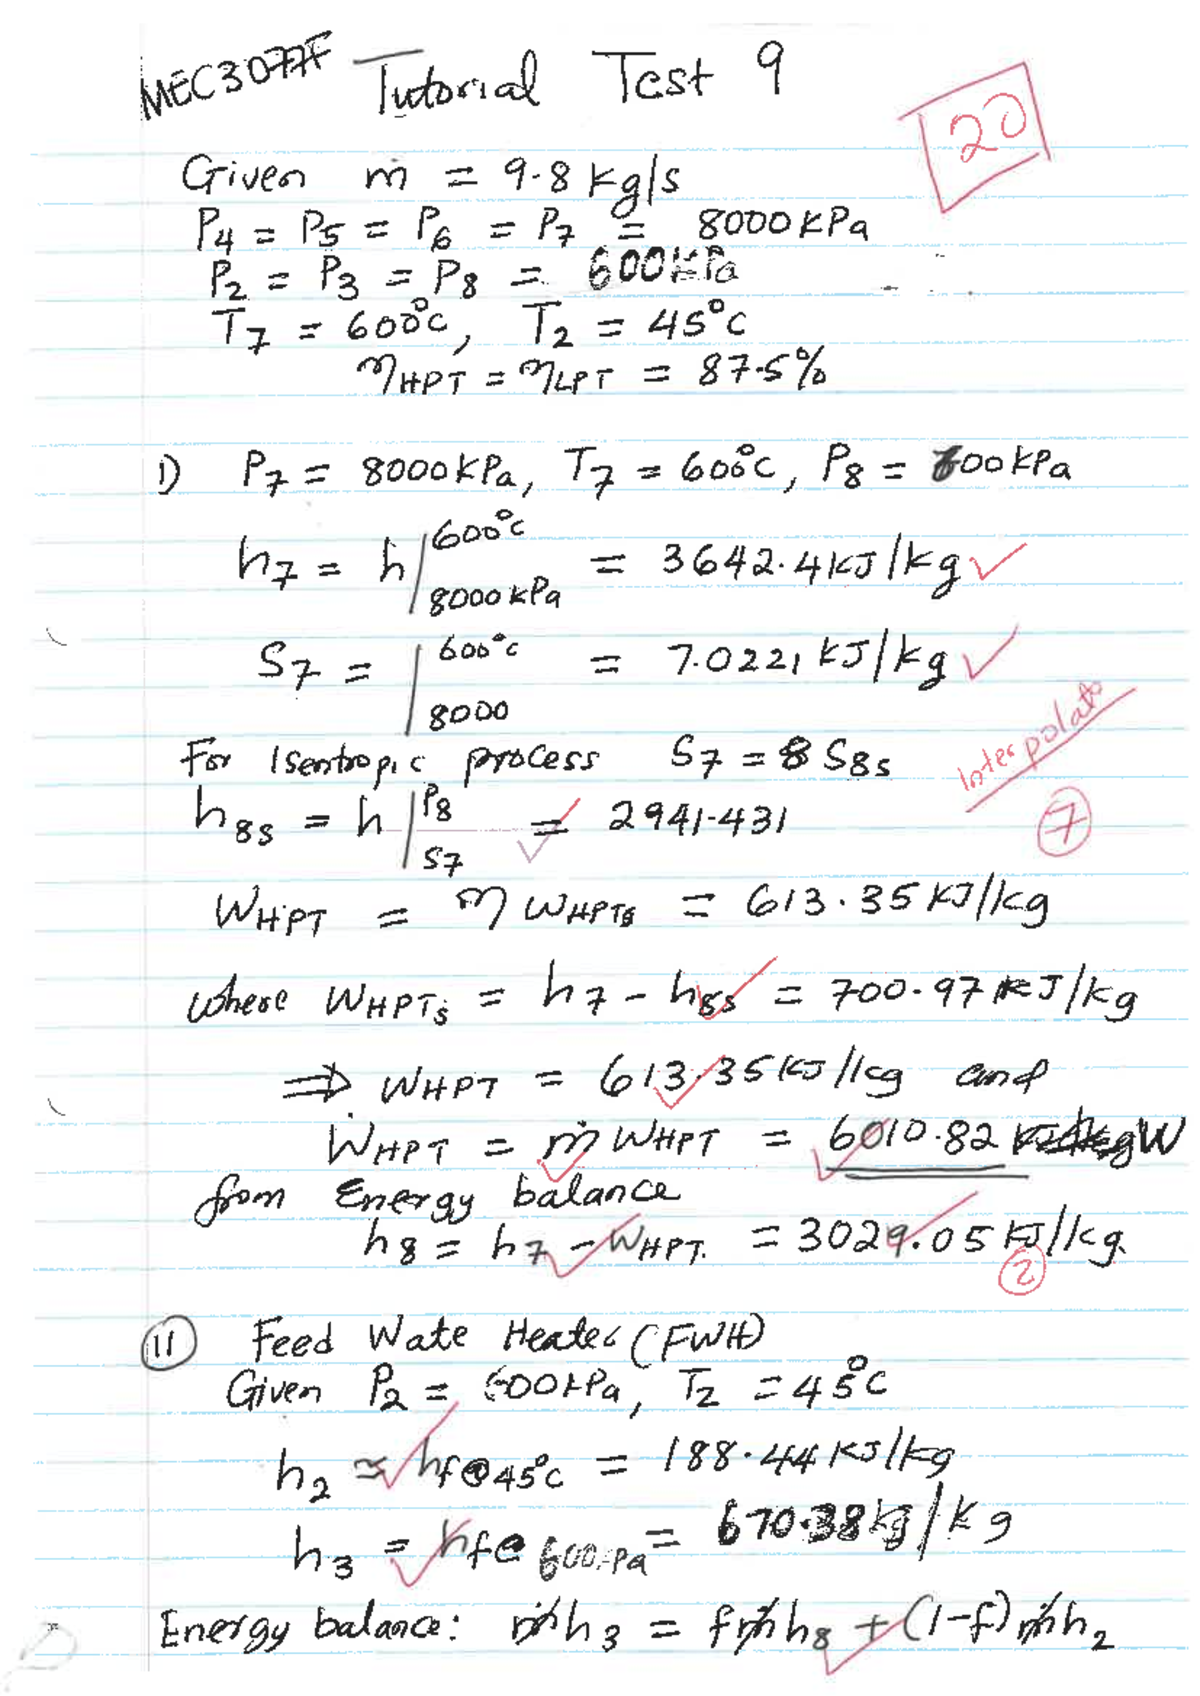 MEC3077F Tutorial Test 9
20
Given ṁ = 9.8 kg/s
P4 = P5 = P6 = P7 = 8000 kPa
P2 = P3 = P8 = 600 kPa
T7 = 600°C, T2 = 45°C
ηHPT = ηLPT = 87.5%
1) P7 = 8000 kPa, T7 = 600°C, P8 = 600 kPa
h7 = h|600°C 8000 kPa = 3642.4 KJ/kg
S7 = |600°C 8000 = 7.0221 KJ/kg
Interpolate
For Isentropic process S7 = S8s
h8s = h|P8 S7 = 2941.431
7
WHPT = η WHPTs = 613.35 KJ/kg
where WHPTs = h7 - h8s = 700.97 KJ/kg
⇒ WHPT = 613.35 KJ/kg and
ẆHPT = ṁ WHPT = 6010.82 W
from Energy balance
h8 = h7 - WHPT. = 3029.05 KJ/kg.
2
11 Feed Wate Heater (FWH)
Given P2 = 600 kPa, T2 = 45°C
h2 ≈ hf@45°C = 188.44 KJ/kg
h3 = hf@ 600kPa = 670.38 kg/kg
Energy balance: ṁh3 = fṁh8 + (1-f)ṁh2